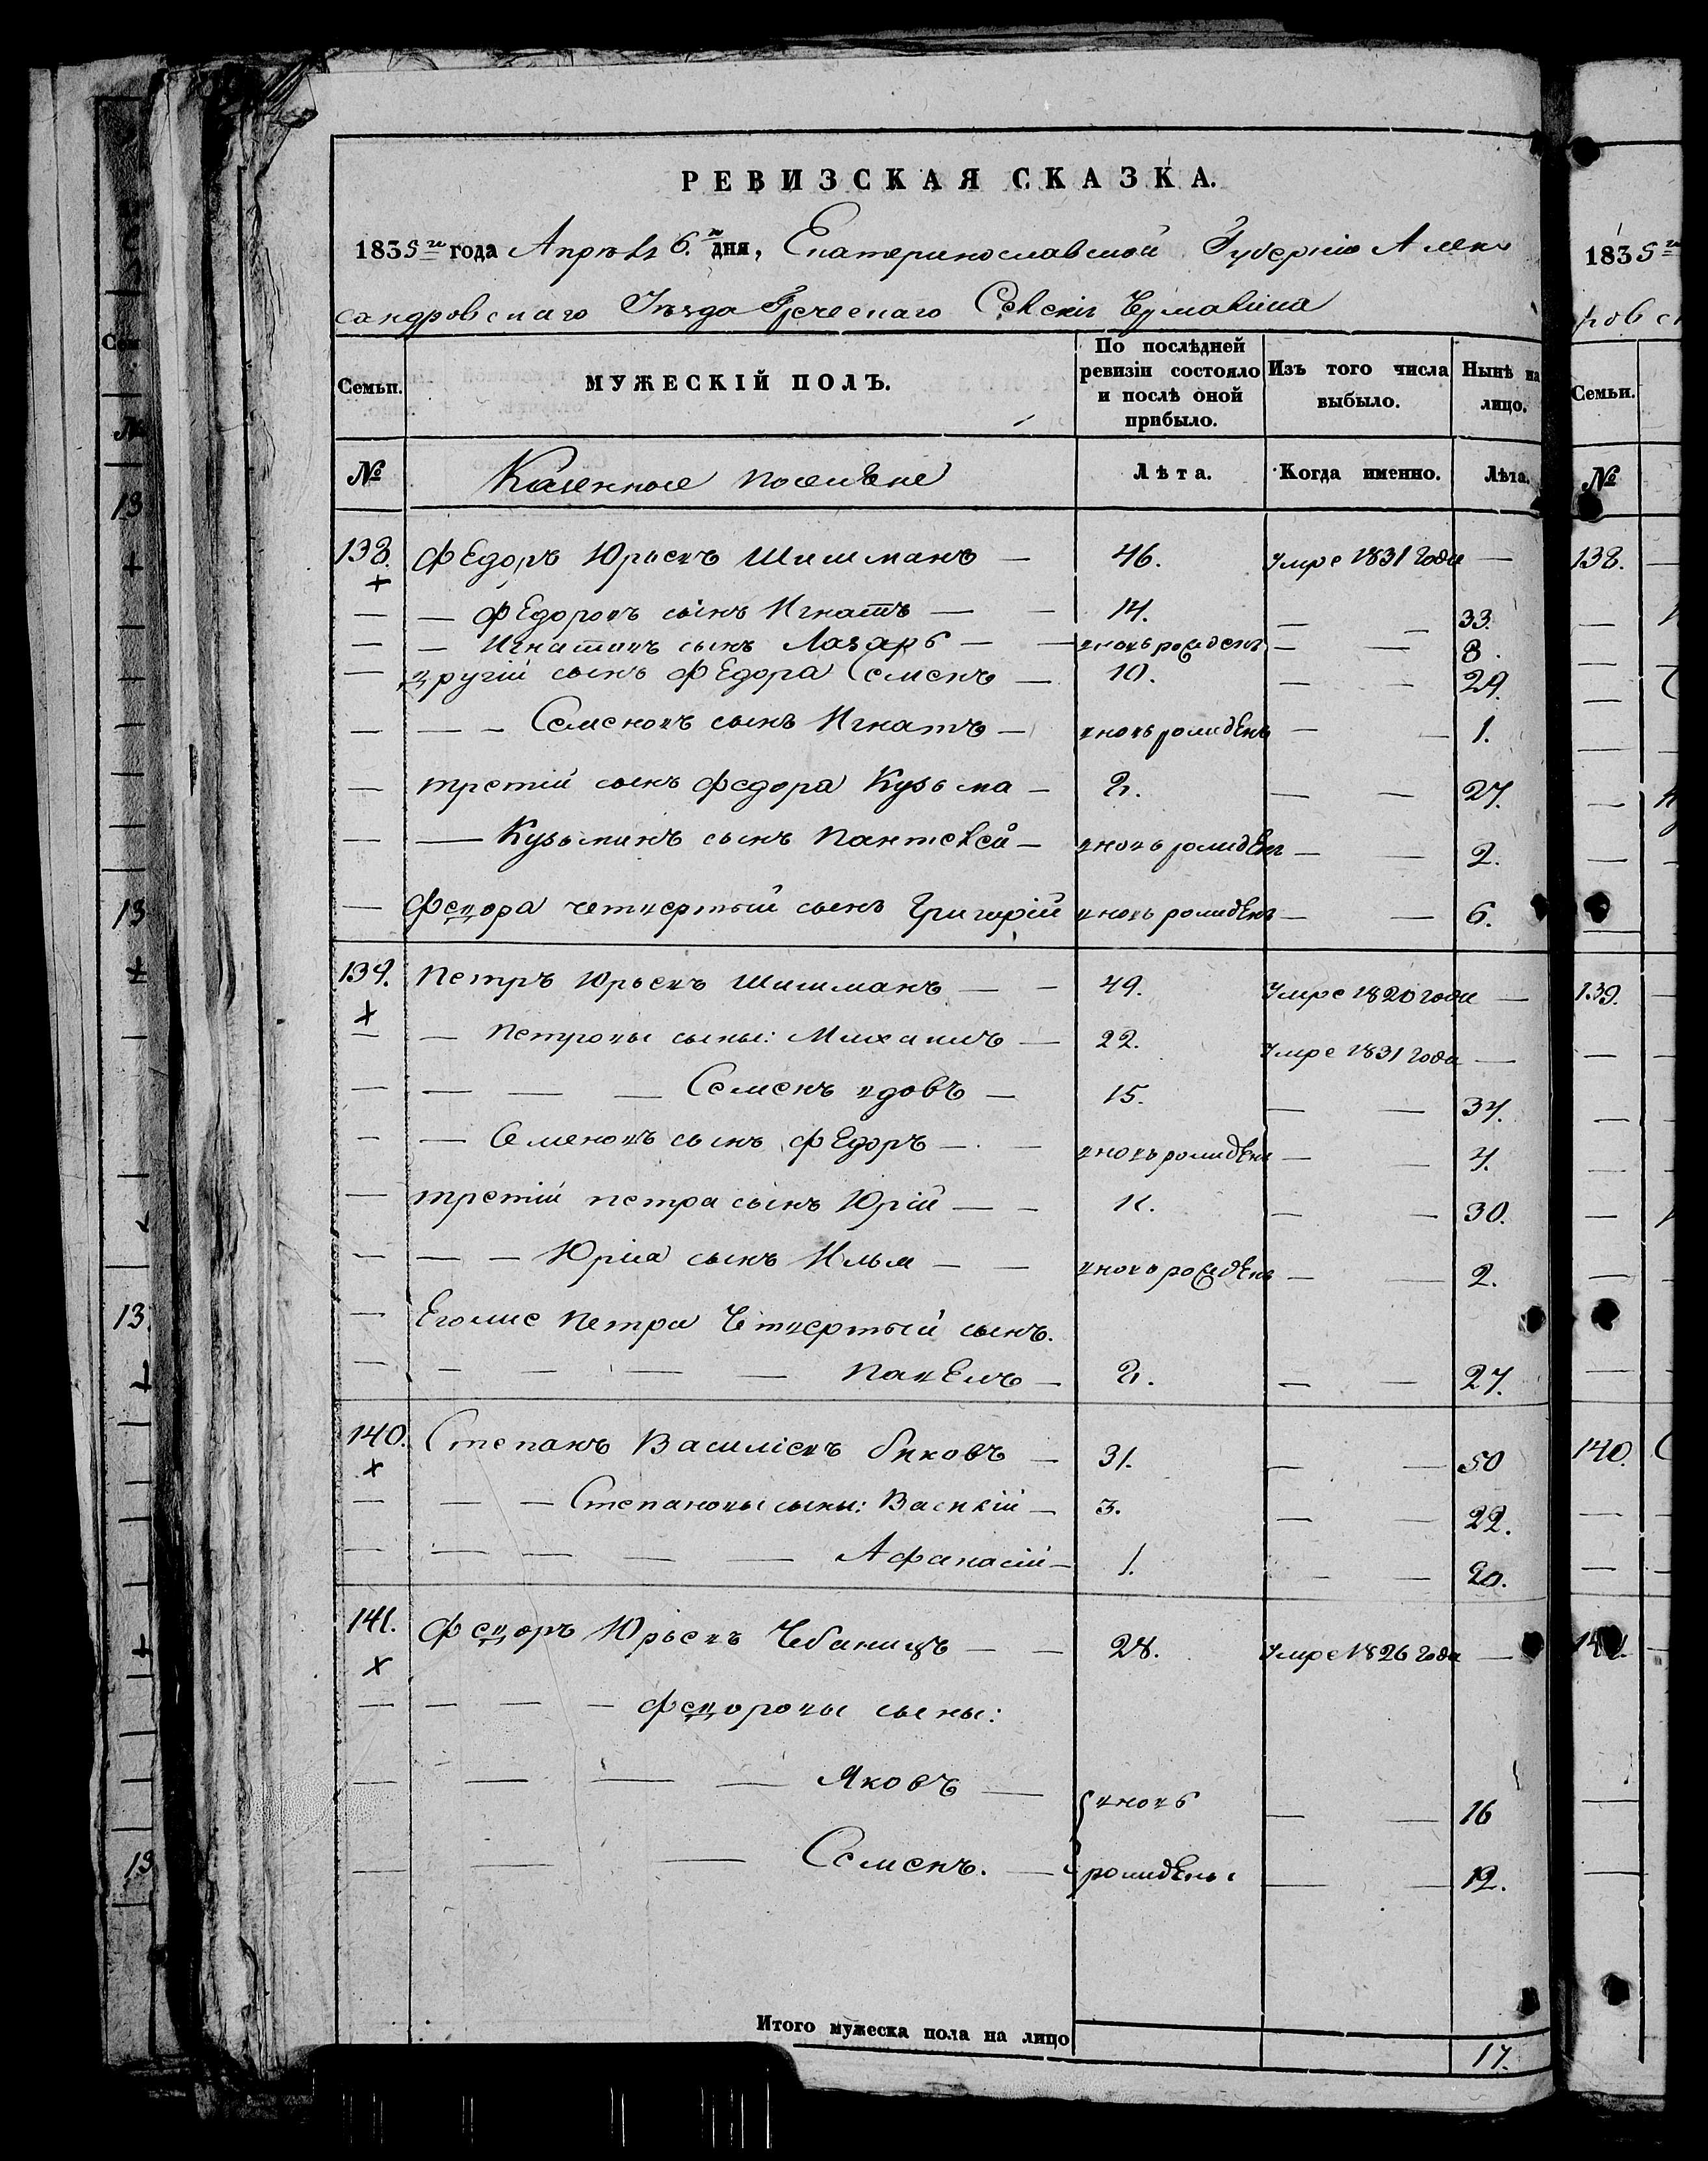 РЕВИЗСКАЯ СКАЗКА.
1835го года Апрѣля 6.го дня, Екатеринославской Губерніи Алек
сандровскаго Уѣзда Греческаго Селенія Чермалика
Семьи. МУЖЕСКІЙ ПОЛЪ. По послѣдней ревизіи состояло и послѣ оной прибыло. Изъ того числа выбыло. Нынѣ на лицо.
№ Казенные поселяне Лѣта. Когда именно. Лѣта.
138. Федоръ Юрьевъ Шишманъ — 46. Умре 1831 Года —
— — Федоровъ сынъ Игнатъ — — 14. — — 33.
— — Игнатовъ сынъ Лазарь — — вновь рожденъ — — 8.
— другій сынъ Федора Семенъ — 10. — — 29.
— — — Семеновъ сынъ Игнатъ — вновь рожденъ — — 1.
— третій сынъ Федора Кузьма — 8. — — 27.
— — Кузьминъ сынъ Пантелей — вновь рожденъ — — 2.
— Федора четвертый сынъ Григорій вновь рожденъ — — 6.
139. Петръ Юрьевъ Шишманъ — — 49. Умре 1820 года —
— — Петровы сыны: Михаилъ — 22. Умре 1831 Года —
— — — — Семенъ вдовъ — 15. — — 34.
— — Семеновъ сынъ Федоръ — — вновь рожденъ — — 4.
— третій петра сынъ Юрій — — 11. — — 30.
— — — Юрія сынъ Илья — — вновь рожденъ — — 2.
— Еговже Петра Четвертый сынъ.
— — — — — Павелъ — 8. — — 27.
140. Степанъ Василіевъ Биковъ — 31. — — 50
— — — Степановы сыны: Василій — 3. — — 22.
— — — — — Афанасій — 1. — — 20.
141. Федоръ Юрьевъ Чебаницъ — — 28. Умре 1826 Года —
— — — — Федоровы сыны:
— — — — Яковъ — вновь — — 16
— — — Семенъ. — рождены — — 12.
Итого мужеска пола на лицо 17.
1835го
ров
Семьи.
№
138.
139.
140.